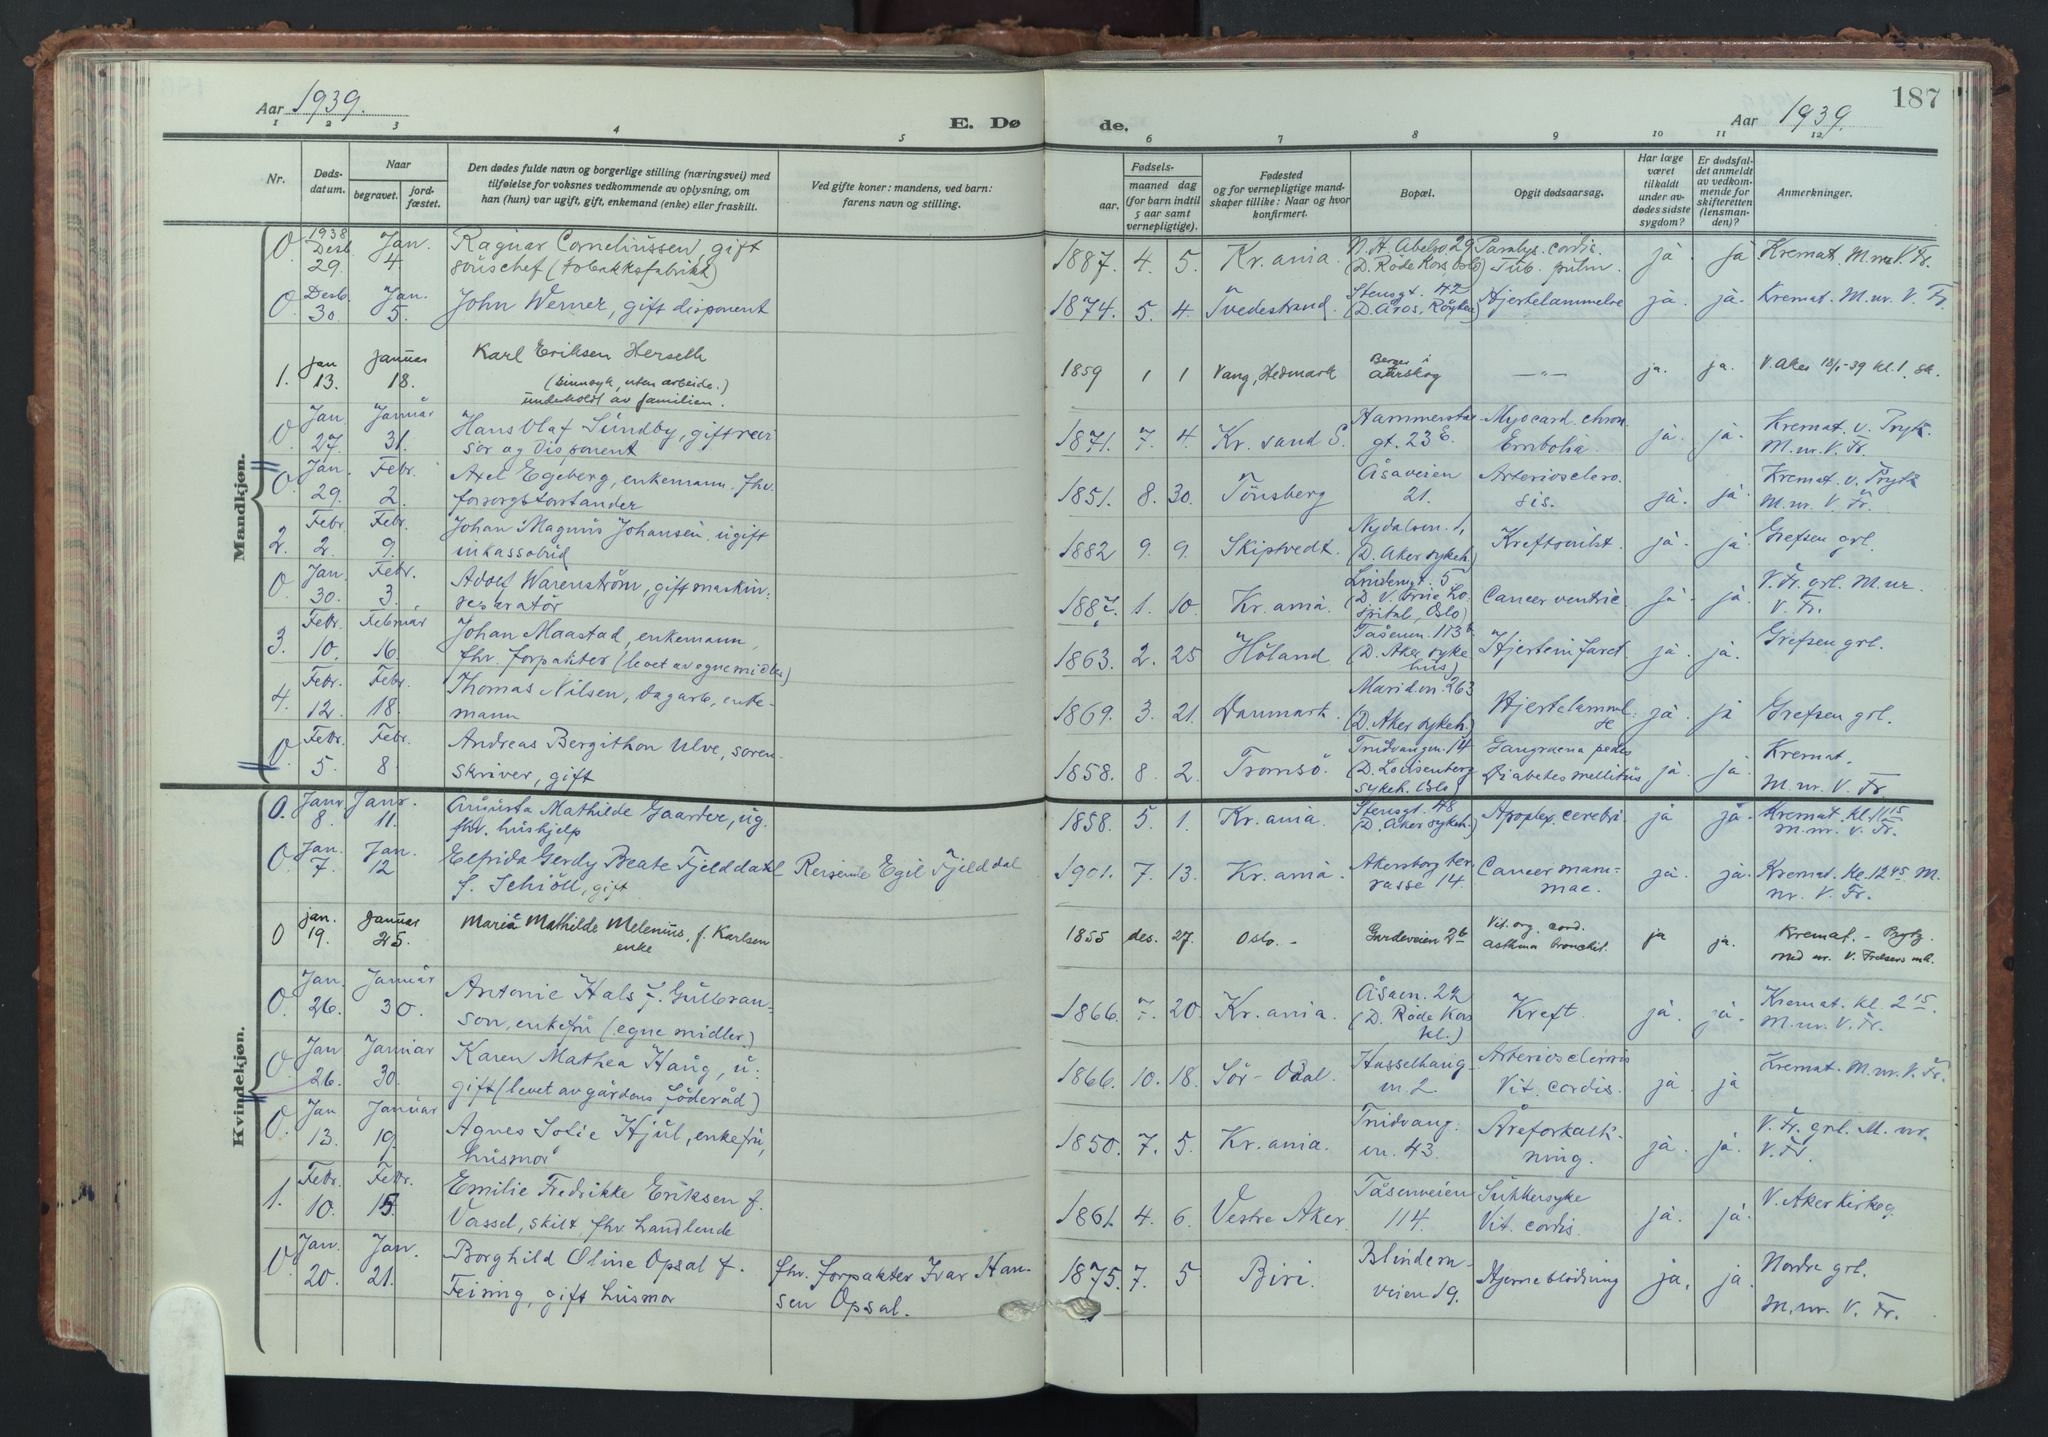 Aar 1939.
E. Dø de.
Aar 1939.
187
1 2 3 4 5 6 7 8 9 10 11 12
Nr.
Døds-
datum.
Naar
begravet.
jord-
fæstet.
Den dødes fulde navn og borgerlige stilling (næringsvei) med
tilføielse for voksnes vedkommende av oplysning, om
han (hun) var ugift, gift, enkemand (enke) eller fraskilt.
Ved gifte koner: mandens, ved barn:
farens navn og stilling.
Fødsels-
aar.
maaned dag
(for barn indtil
5 aar samt
vernepligtige).
Fødested
og for vernepligtige mand-
skaper tillike: Naar og hvor
konfirmert.
Bopæl.
Opgit dødsaarsag.
Har læge
været
tilkaldt
under av-
dødes sidste
sygdom?
Er dødsfal-
det anmeldt
av vedkom-
mende for
skifteretten
(lensman-
den)?
Anmerkninger.
Mandkjøn.
0 1938 Desb. 29. Jan. 4 Ragnar Corneliussen, gift
souschef (tobakksfabrikk) 1887. 4. 5. Kr.ania. N. H. Abelsv. 29 (D. Røde Kors Oslo) Paralys. cordis. Tub. pulm. ja ja Kremat. M. nr. V. Fr.
0. Desb. 30. Jan. 5. John Werner, gift disponent 1874. 5. 4. Tvedestrand. Stensgt. 42 (D. Åros, Røyken) Hjertelammelse ja. ja. Kremat. M. nr. V. Fr.
1. jan 13. januar 18. Karl Eriksen Herseth
(sinnsyk, uten arbeide.)
underholdt av familien. 1859 1 1 Vang, Hedmark Berger i Aurskog —"— ja. ja. V. Aker 18/1-39 kl. 1.
0. Jan 27. Januar 31. Hans Olaf Sundby, gift revi
sor og disponent 1871. 7. 4. Kr. sand S. Hammerstas gt. 23 E. Myocard. chron. Embolia ja. ja. Kremat. v. Prytz. M. nr. V. Fr.
0. Jan. 29. Febr. 2. Axel Egeberg, enkemann, fhv.
forsorgsforstander 1851. 8. 30. Tönsberg Åsaveien 21. Arterioschero sis. ja. ja. Kremat. v. Prytz M. nr. V. Fr.
2. Febr 2. Febr. 9. Johan Magnus Johansen, ugift
inkassobud 1882 9. 9. Skiptvedt. Nydalsvn. 1, (D. Aker sykeh.) Kreftsvulst. ja. ja. Grefsen grl.
0 Jan. 30. Febr. 3. Adolf Warenström, gift maskin-
reparatör 1887. 1. 10. Kr. ania. Lindemgt. 5 (D. V. Frue Ho spital, Oslo) Cancer ventric. ja. ja. V. Fr. grl. M. nr. V. Fr.
3. Febr. 10. Februar 16. Johan Maastad, enkemann,
fhv. forpakter (levet av egne midler) 1863. 2. 25 Höland Tåsenvn. 113 b (D. Aker syke hus) Hjerteinfarct ja. ja. Grefsen grl.
4. Febr. 12. Febr. 18. Thomas Nilsen, dagarb., enke-
mann 1869. 3. 21. Danmark. Maridvn. 263 (D. Aker sykeh.) Hjertelammel- se ja. ja Grefsen grl.
0. Febr. 5. Febr. 8 Andreas Bergithon Ulve, soren-
skriver, gift 1858. 8. 2. Tromsö. Trudvangvn. 14 (D. Lovisenberg sykeh. Oslo) Gangraena pedis Diabetes mellitus ja. ja. Kremat. M. nr. V. Fr.
Kvindekjøn.
0. Janr 8. Janr. 11. Augusta Mathilde Gaarder, ug.
fhv. hushjelp 1858. 5. 1. Kr. ania. Stensgt. 48 (D. Aker sykeh.) Apoplex. cerebri. ja ja. Kremat. kl. 11 15 M. nr. V. Fr.
0. Jan. 7. Jan. 12 Elfrida Gerdy Beate Fjelddahl
f. Schiöll, gift Reisende Egil Fjelddal 1901. 7. 13. Kr. ania. Akersborg ter. rasse 14. Cancer mam- mae. ja. ja. Kremat. kl. 12 45 M. nr. V. Fr.
0 jan. 19. januar 25. Marie Mathilde Melenius, f. Karlsen
enke 1855 des. 27. Oslo. - Gardeveien 2b Vit. org. cord. asthma bronchit. ja ja. Kremat. - Prytz. Med nr. V. Frelsers mh.
0. Jan. 26. Januar 30. Antonie Hals f. Gulbran-
son, enkefru (egne midler.) 1866. 7. 20. Kr. ania. Åsavn. 22 (D. Røde Kors kl.) Kreft. ja. ja. Kremat. kl. 2 15. M. nr. V. Fr.
0 Jan 26. Januar 30. Karen Mathea Haug, u-
gift (levet av gårdens föderåd) 1866. 10. 18. Sör-Odal. Hasselhaug- vn. 2 Arteriosclerosis Vit. cordis. ja. ja Kremat. M. nr. V. Fr.
0. Jan 13. Januar 19. Agnes Sofie Hjul, enkefru,
husmor 1850. 7. 5. Kr. ania. Trudvang- vn. 43. Åreforkalk- ning. ja. ja. V. Fr. grl. M. nr. V. Fr.
1. Febr. 10. Febr. 15. Emilie Fredrikke Eriksen f.
Vassel, skilt fhv. handlende 1861. 4. 6. Vestre Aker. Tåsenveien 114. Sukkersyke Vit. cordis. ja. ja. V. Aker kirkeg.
0. Jan. 20. Jan. 21. Borghild Oline Opsal f.
Feiring, gift husmor fhv. forpakter Ivar Han-
sen Opsal. 1875. 7. 5 Biri. Blindern- veien 19. Hjerneblödning ja. ja. Nordre grl. M. nr. V. Fr.